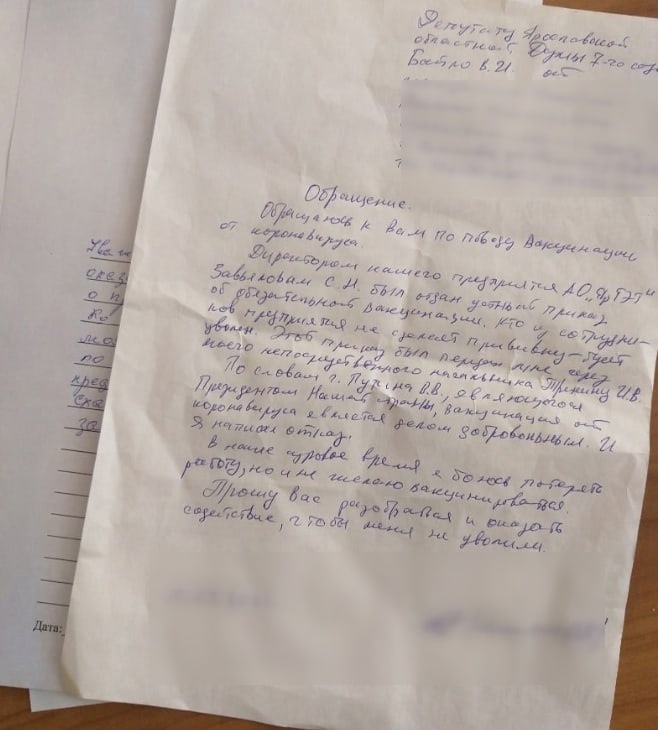 Депутату Ярославской
областной Думы 7-го
Байло В.И. от
Обращение.
Обращаюсь к Вам по поводу Вакцинации
от коронавируса.
Директором нашего предприятия АО „ЯрТЭТ"
Завьяловам С.Н. был отдан устный приказ
об обязательной вакцинации. Кто из сотрудни-
ков предприятия не сделает прививку - будет
уволен. Этот приказ был передан мне через
моего непосредственного начальника
По словам г. Путина В.В., являющегося
Президентом Нашей страны, вакцинация от
коронавируса является делом добровольным. И
Я написал отказ.
В наше суровое время я боюсь потерять
работу, но и не желаю вакцинироваться.
Прошу вас разобраться и оказать
содействие, чтобы меня не уволили.
о
по
за
Дата: